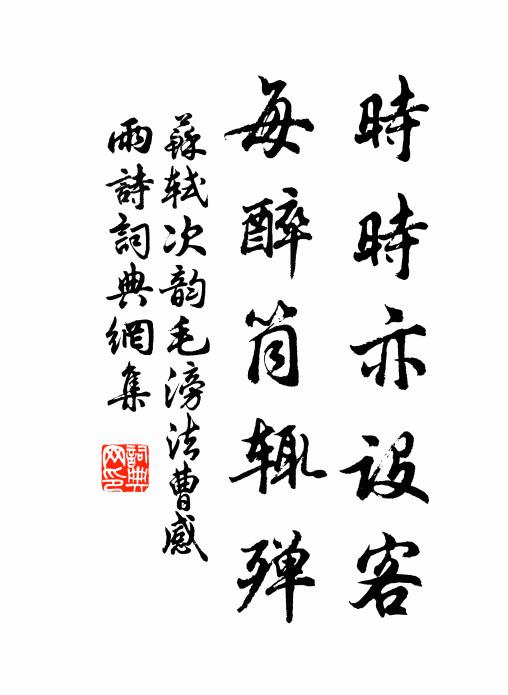 時時亦設客
每醉筒輒殫
蘇軾次韵毛滂法曹感
雨詩詞典網集
詞典
网印